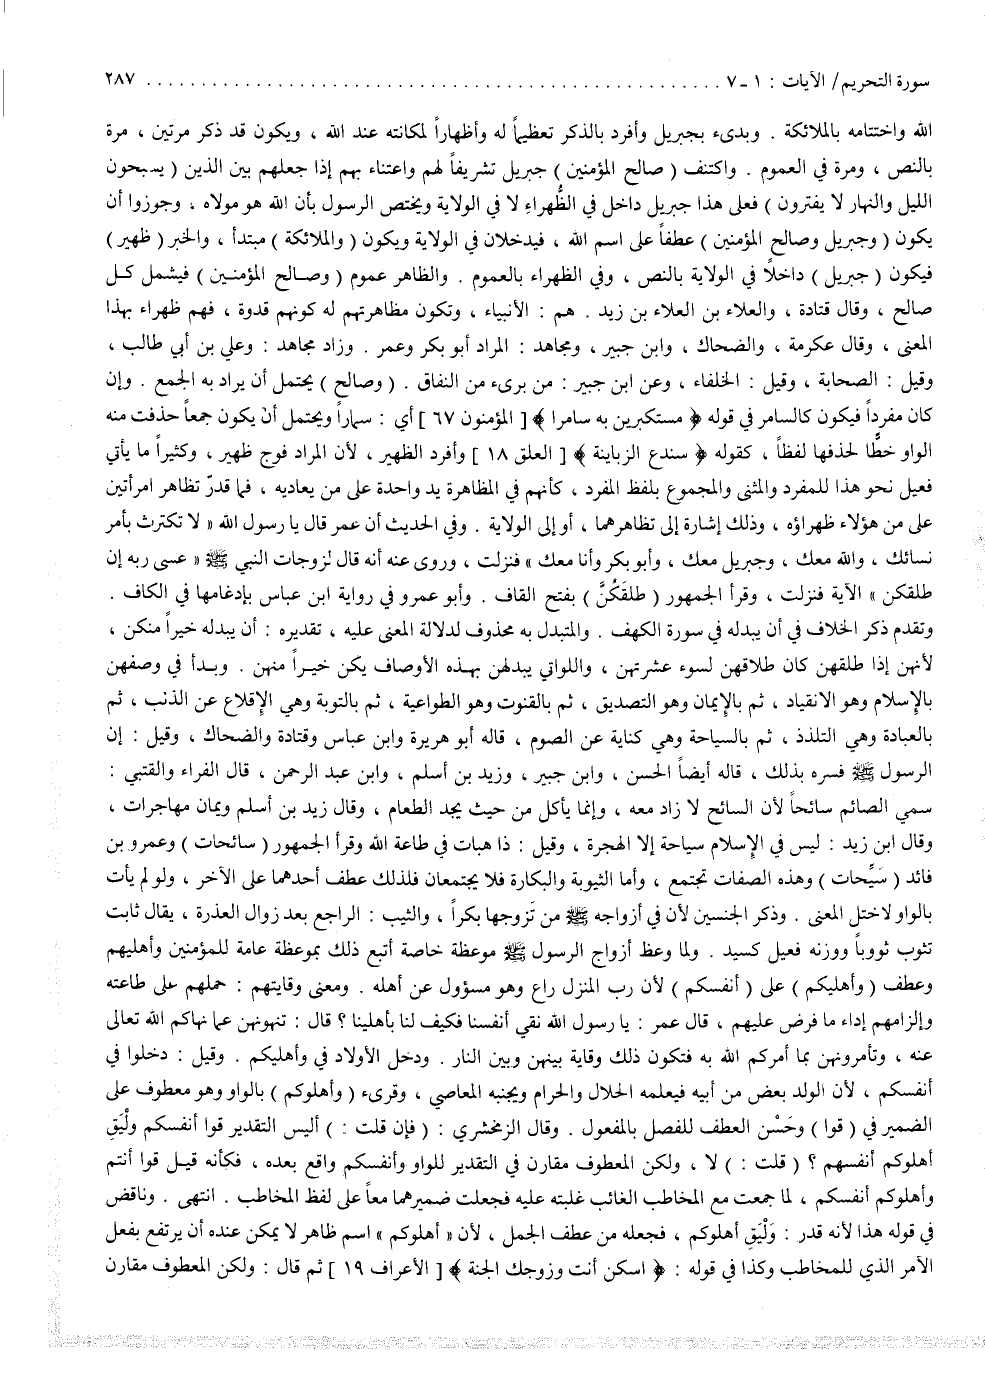 سورة التحريم/ الآيات : ١ ـ ٧ . . . . . . . . . . . . . . . . . . . . . . . . . . . . . . . . . . . . . . . . ٢٨٧
الله واختتامه بالملائكة . وبدىء بجبريل وأفرد بالذكر تعظيماً له وأظهاراً لمكانته عند الله ، ويكون قد ذكر مرتين ، مرة
بالنص ، ومرة في العموم . واكتنف ( صالح المؤمنين ) جبريل تشريفاً لهم واعتناء بهم إذا جعلهم بين الذين ( يسبحون
الليل والنهار لا يفترون ) فعلى هذا جبريل داخل في الظُّهراءِ لا في الولاية ويختص الرسول بأن الله هو مولاه ، وجوزوا أن
يكون ( وجبريل وصالح المؤمنين ) عطفاً على اسم الله ، فيدخلان في الولاية ويكون ( والملائكة ) مبتدأ ، والخبر ( ظهير )
فيكون ( جبريل ) داخلاً في الولاية بالنص ، وفي الظهراء بالعموم . والظاهر عموم ( وصالح المؤمنين ) فيشمل كل
صالح ، وقال قتادة ، والعلاء بن العلاء بن زيد . هم : الأنبياء ، وتكون مظاهرتهم له كونهم قدوة ، فهم ظهراء بهذا
المعنى ، وقال عكرمة ، والضحاك ، وابن جبير ، ومجاهد : المراد أبو بكر وعمر . وزاد مجاهد : وعلي بن أبي طالب ،
وقيل : الصحابة ، وقيل : الخلفاء ، وعن ابن جبير : من برىء من النفاق . ( وصالح ) يحتمل أن يراد به الجمع . وإن
كان مفرداً فيكون كالسامر في قوله ﴿ مستكبرين به سامرا ﴾ [ المؤمنون ٦٧ ] أي : سماراً ويحتمل أنْ يكون جمعاً حذفت منه
الواو خطًّا لحذفها لفظاً ، كقوله ﴿ سندع الزبانية ﴾ [ العلق ١٨ ] وأفرد الظهير ، لأن المراد فوج ظهير ، وكثيراً ما يأتي
فعيل نحو هذا للمفرد والمثنى والمجموع بلفظ المفرد ، كأنهم في المظاهرة يد واحدة على من يعاديه ، فما قدرّ تظاهر امرأتين
على من هؤلاء ظهراؤه ، وذلك إشارة إلى تظاهرهما ، أو إلى الولاية . وفي الحديث أن عمر قال يا رسول الله « لا تكترث بأمر
نسائك ، والله معك ، وجبريل معك ، وأبو بكر وأنا معك » فنزلت ، وروى عنه أنه قال لزوجات النبي ﷺ « عسى ربه إن
طلقكن » الآية فنزلت ، وقرأ الجمهور ( طلقَكُنَّ ) بفتح القاف . وأبو عمرو في رواية ابن عباس بإدغامها في الكاف .
وتقدم ذكر الخلاف في أن يبدله في سورة الكهف . والمتبدل به محذوف لدلالة المعنى عليه ، تقديره : أن يبدله خيراً منكن ،
لأنهن إذا طلقهن كان طلاقهن لسوء عشرتهن ، واللواتي يبدلهن بهذه الأوصاف يكن خيراً منهن . وبدأ في وصفهن
بالإِسلام وهو الانقياد ، ثم بالإِيمان وهو التصديق ، ثم بالقنوت وهو الطواعية ، ثم بالتوبة وهي الإِقلاع عن الذنب ، ثم
بالعبادة وهي التلذذ ، ثم بالسياحة وهي كناية عن الصوم ، قاله أبو هريرة وابن عباس وقتادة والضحاك ، وقيل : إن
الرسول ﷺ فسره بذلك ، قاله أيضاً الحسن ، وابن جبير ، وزيد بن أسلم ، وابن عبد الرحمن ، قال الفراء والقتبي :
سمي الصائم سائحاً لأن السائح لا زاد معه ، وإنما يأكل من حيث يجد الطعام ، وقال زيد بن أسلم ويمان مهاجرات ،
وقال ابن زيد : ليس في الإِسلام سياحة إلا الهجرة ، وقيل : ذا هبات في طاعة الله وقرأ الجمهور ( سائحات ) وعمرو بن
فائد ( سَيِّحات ) وهذه الصفات تجتمع ، وأما الثيوبة والبكارة فلا يجتمعان فلذلك عطف أحدهما على الآخر ، ولو لم يأت
بالواو لاختل المعنى . وذكر الجنسين لأن في أزواجه ﷺ من تَزوجها بكراً ، والثيب : الراجع بعد زوال العذرة ، يقال ثابت
تثوب ثووباً ووزنه فعيل كسيد . ولما وعظ أزواج الرسول ﷺ موعظة خاصة أتبع ذلك بموعظة عامة للمؤمنين وأهليهم
وعطف ( وأهليكم ) على ( أنفسكم ) لأن رب المنزل راع وهو مسؤول عن أهله . ومعنى وقايتهم : حملهم على طاعته
وإلزامهم إداء ما فرض عليهم ، قال عمر : يا رسول الله نقي أنفسنا فكيف لنا بأهلينا ؟ قال : تنهونهن عما نهاكم الله تعالى
عنه ، وتأمرونهن بما أمركم الله به فتكون ذلك وقاية بينهن وبين النار . ودخل الأولاد في وأهليكم . وقيل : دخلوا في
أنفسكم ، لأن الولد بعض من أبيه فيعلمه الحلال والحرام ويجنبه المعاصي ، وقرىء ( وأهلوكم ) بالواو وهو معطوف على
الضمير في ( قوا ) وحَسْن العطف للفصل بالمفعول . وقال الزمخشري : ( فإن قلت : ) أليس التقدير قوا أنفسكم ولْيَقِ
أهلوكم أنفسهم ؟ ( قلت : ) لا ، ولكن المعطوف مقارن في التقدير للواو وأنفسكم واقع بعده ، فكأنه قيل قوا أنتم
وأهلوكم أنفسكم ، لما جمعت مع المخاطب الغائب غلبته عليه فجعلت ضميرهما معاً على لفظ المخاطب . انتهى . وناقض
في قوله هذا لأنه قدر : وَلْيَقِ أهلوكم ، فجعله من عطف الجمل ، لأن « أهلوكم » اسم ظاهر لا يمكن عنده أن يرتفع بفعل
الأمر الذي للمخاطب وكذا في قوله : ﴿ اسكن أنت وزوجك الجنة ﴾ [ الأعراف ١٩ ] ثم قال : ولكن المعطوف مقارن